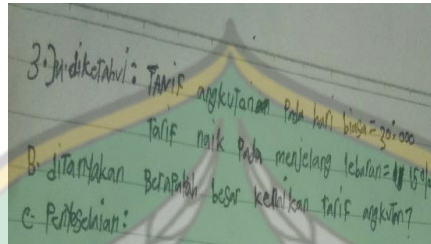 3. A. diketahui : Tarif angkutan Pada hari biasa = 30.000
Tarif naik Pada menjelang lebaran = 15%
B. ditanyakan Berapakah besar kenaikan tarif angkutan?
C. Penyelesaian :